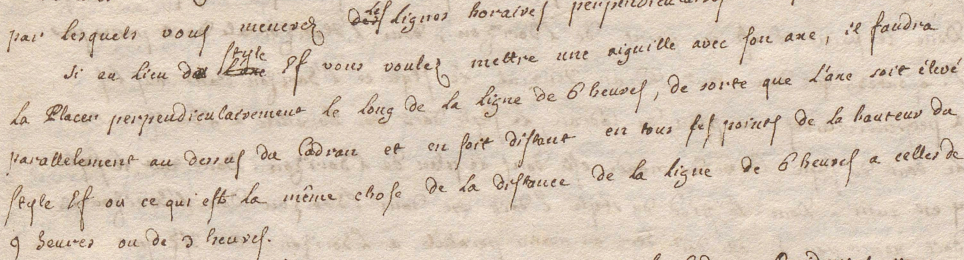 par lesquels vous menerez les lignes horaires perpendiculaires
Si au lieu du style Ef vous voulez mettre une aiguille avec son axe, il faudra
la Placer perpendiculairement le long de la ligne de 6 heures, de sorte que l'axe soit élevé
parallelement au dessus du Cadran et en soit distant en tous ses points de la hauteur du
style Ef ou ce qui est la même chose de la distance de la ligne de 6 heures a celles de
9 heures ou de 3 heures.